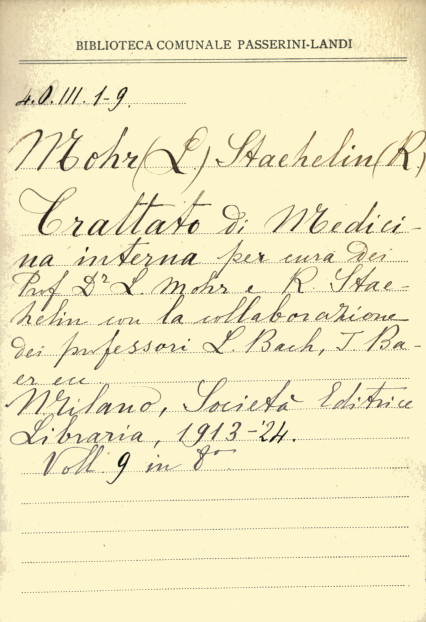 BIBLIOTECA COMUNALE PASSERINI-LANDI
4.O.III.1-9.
Mohr (L.) Staehelin (R.)
Trattato di Medici-
na interna per cura dei
Prof Dr L. Mohr e R. Stae-
helin con la collaborazione
dei professori L. Bach, J Ba-
er ecc
Milano, Società Editrice
Libraria, 1913-'24.
Voll 9 in 8°